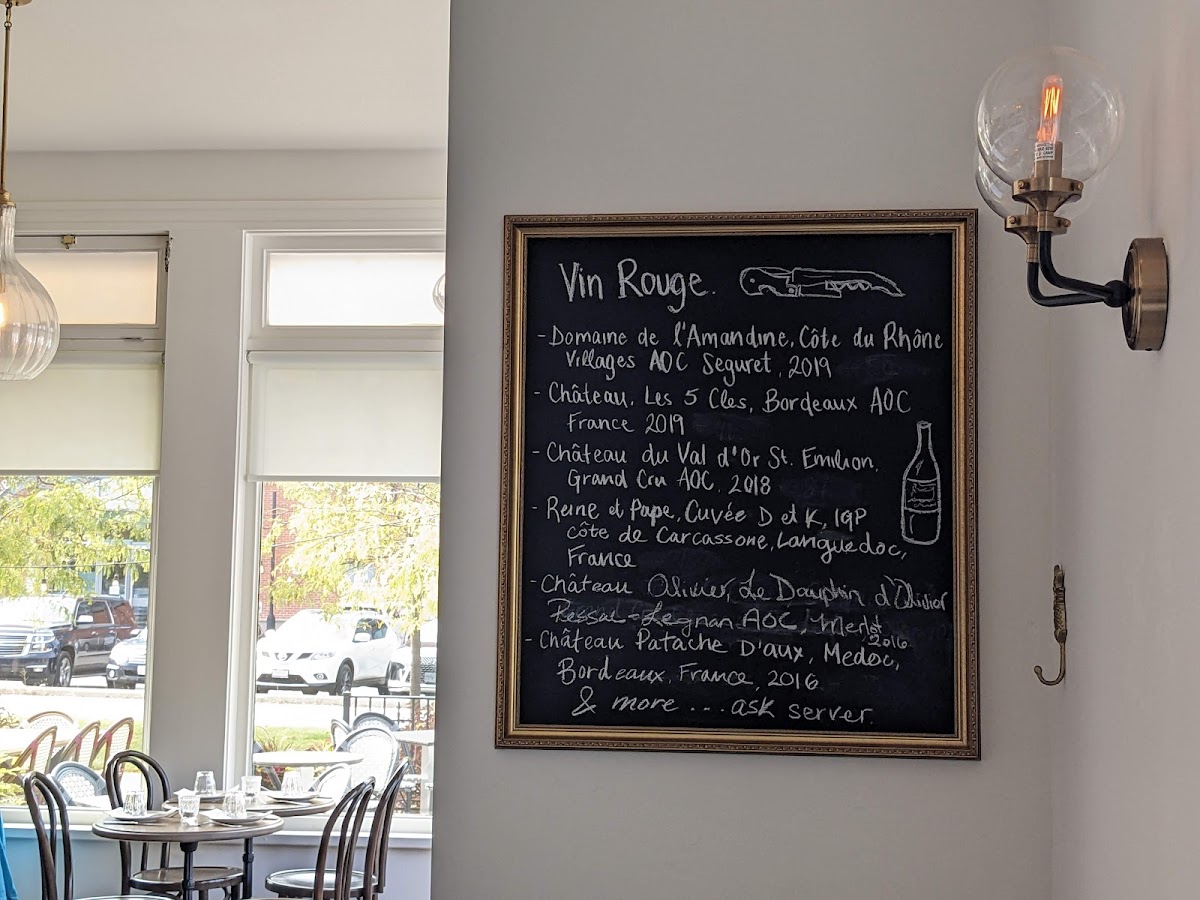 Vin Rouge.
- Domaine de l'Amandine, Côte du Rhône
Villages AOC Seguret, 2019
- Château, Les 5 Cles, Bordeaux AOC
France 2019
- Château du Val d'Or St. Emilion,
Grand Cru AOC, 2018
- Reine et Pape, Cuvée D et K, IGP
côte de Carcassone, Languedoc,
France
- Château Olivier, Le Dauphin d'Olivier
Pessac-Legnan AOC, Merlot
2016
- Château Patache D'aux, Medoc,
Bordeaux, France, 2016
& more ... ask server.